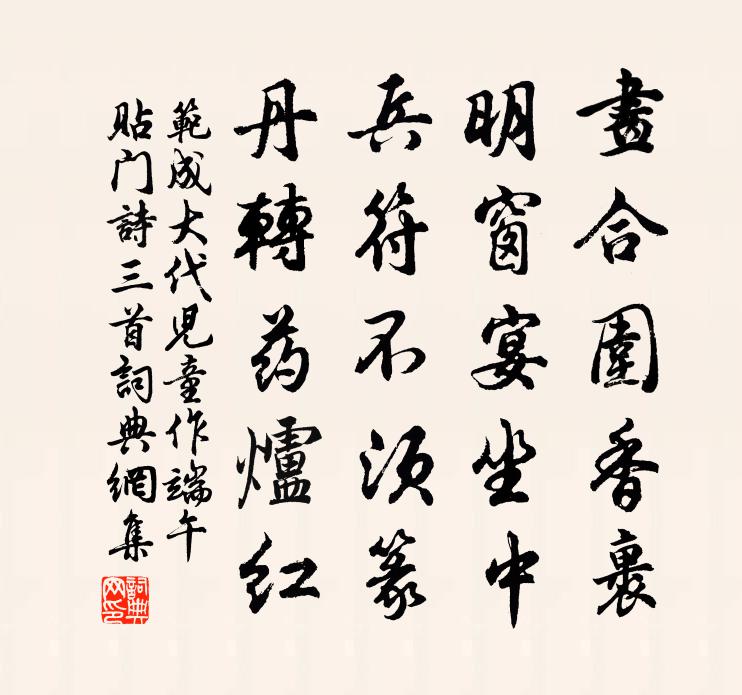 畫合圍香裏
明窗宴坐中
兵符不須篆
丹轉药爐紅
範成大代兒童作端午
貼门詩三首詞典網集
詞典网印